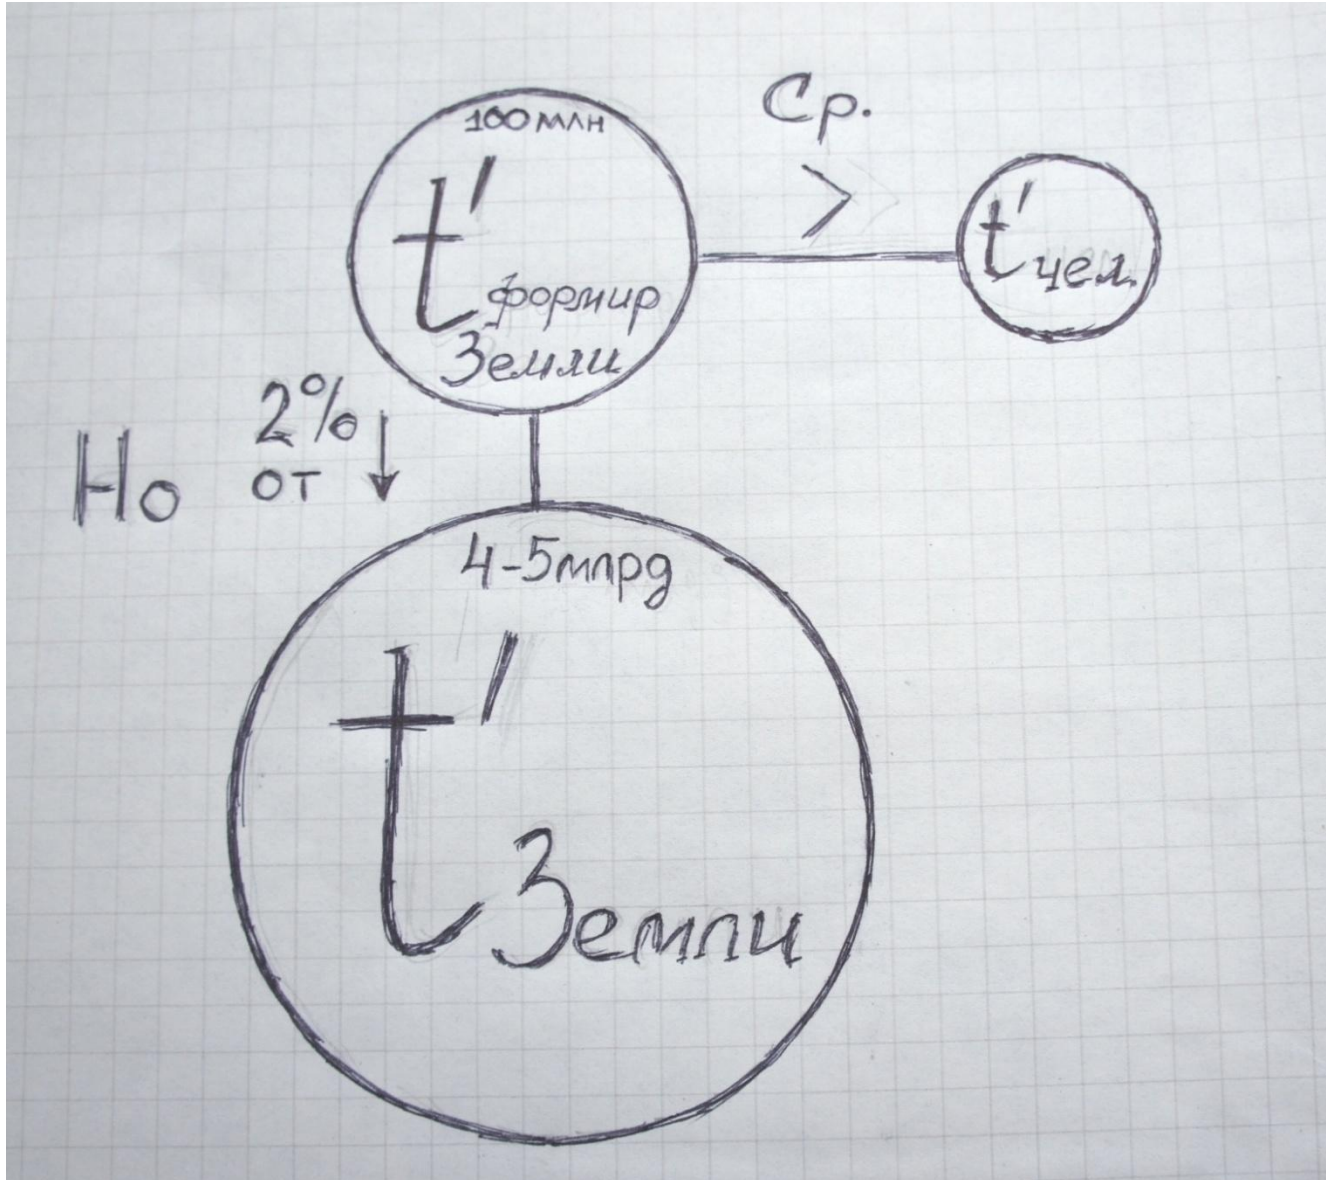 Ср.
>
100 млн
t'
формир
Земли
t' чел.
2%
Но
от
4-5 млрд
t' Земли